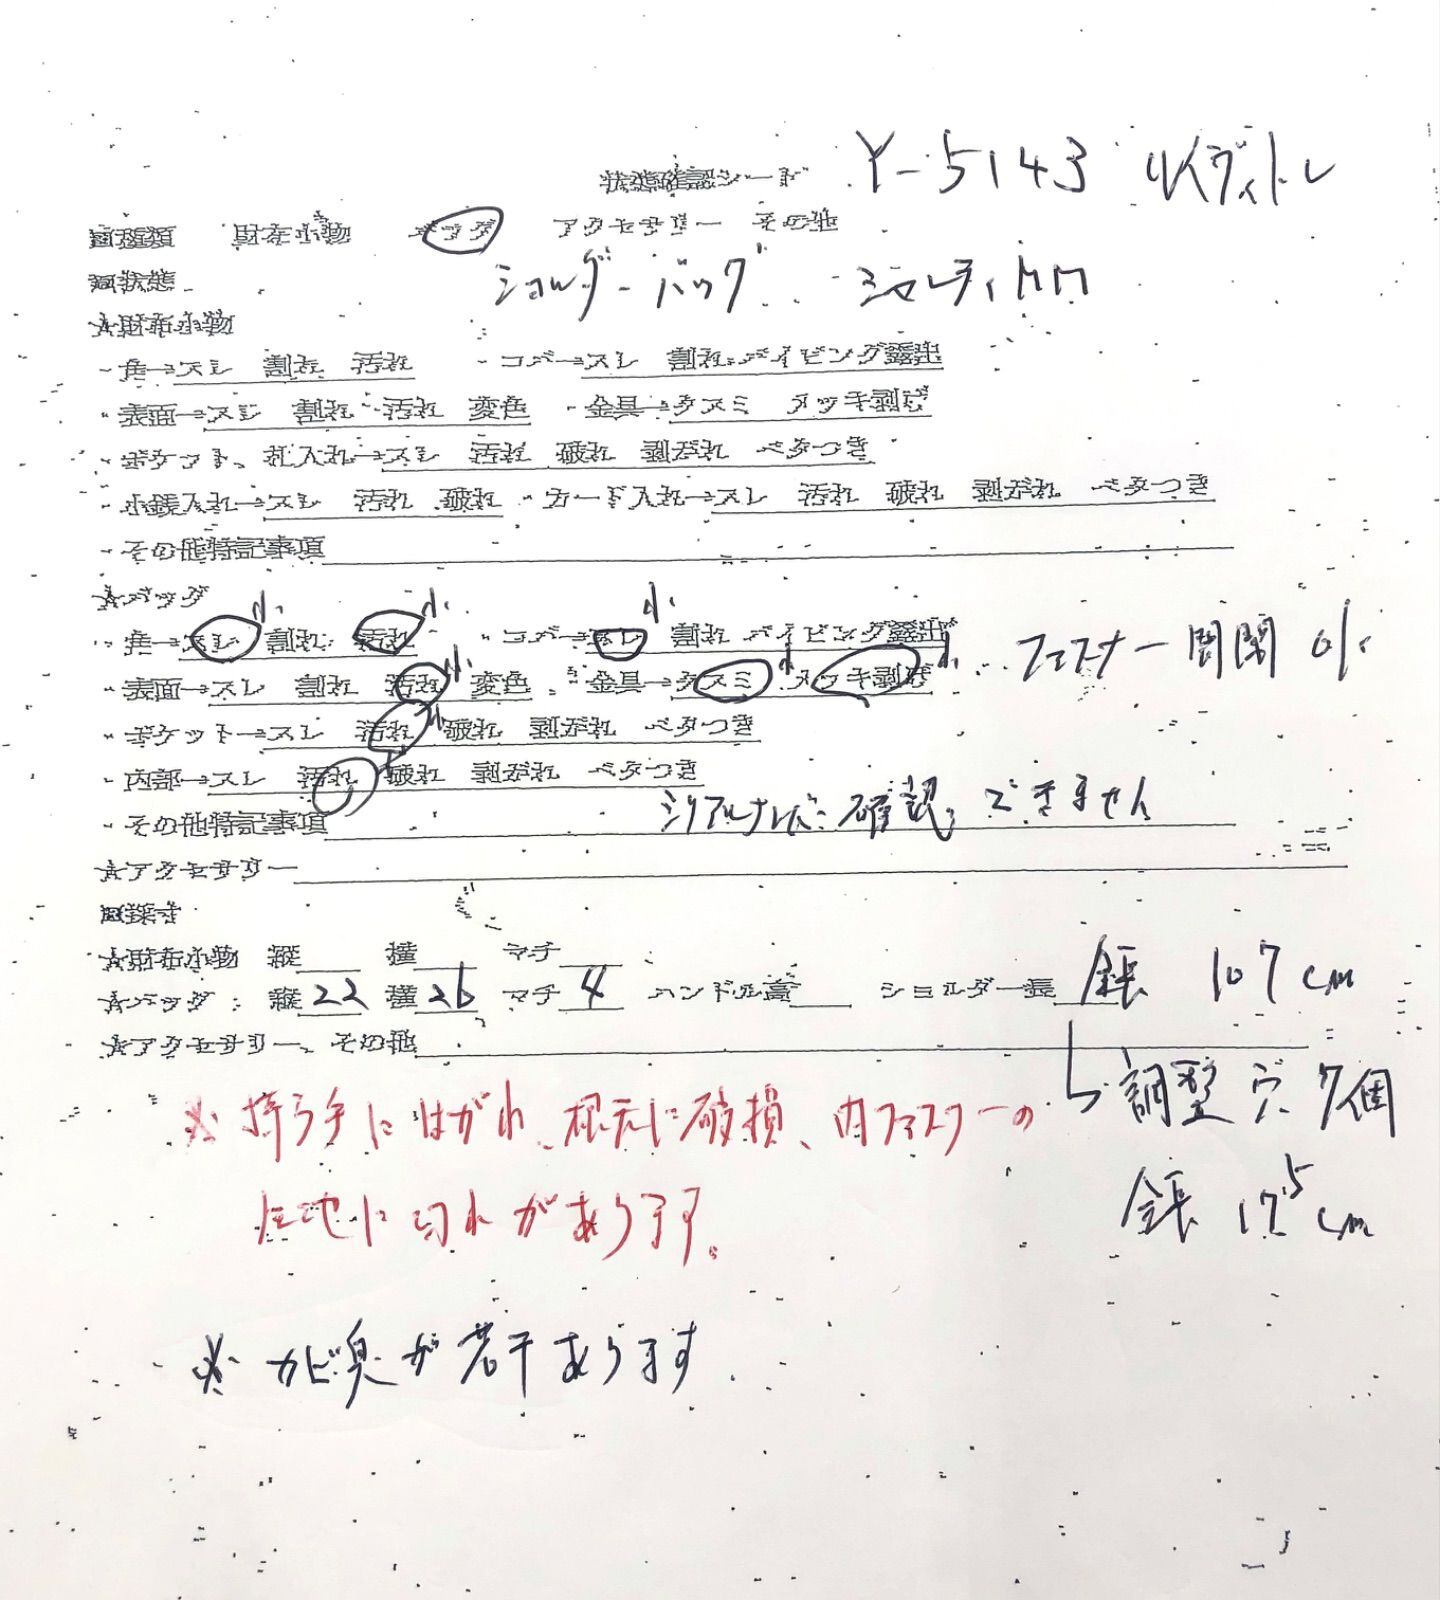 状態確認シート Y-5143 ルイヴィトン
■種類 財布小物 バッグ アクセサリー その他
■状態 ショルダーバッグ ミュレティMM
★財布小物
・角→スレ 割れ 汚れ ・コバ→スレ 割れ パイピング露出
・表面→スレ 割れ 汚れ 変色 ・金具→クスミ メッキ剥げ
・ポケット、札入れ→スレ 汚れ 破れ 剥がれ ベタつき
・小銭入れ→スレ 汚れ 破れ ・カード入れ→スレ 汚れ 破れ 剥がれ ベタつき
・その他特記事項
★バッグ
・角→スレ小 割れ 汚れ小 ・コバ→スレ小 割れ パイピング露出
・表面→スレ 割れ 汚れ小 変色 ・金具→クスミ小 メッキ剥げ小 ファスナー開閉 ok
・ポケット→スレ 汚れ小 破れ 剥がれ ベタつき
・内部→スレ 汚れ小 破れ 剥がれ ベタつき
・その他特記事項 シリアルナンバー確認できません
★アクセサリー
■採寸
★財布小物 縦 横 マチ
★バッグ：縦22 横26 マチ4 ハンドル高 ショルダー長 全長 107cm
★アクセサリー、その他
↳調整穴 7個
※持ち手にはがれ、根元に破損、内ファスナーの
全長 17.5cm
生地に切れがあります。
※カビ臭が若干あります.